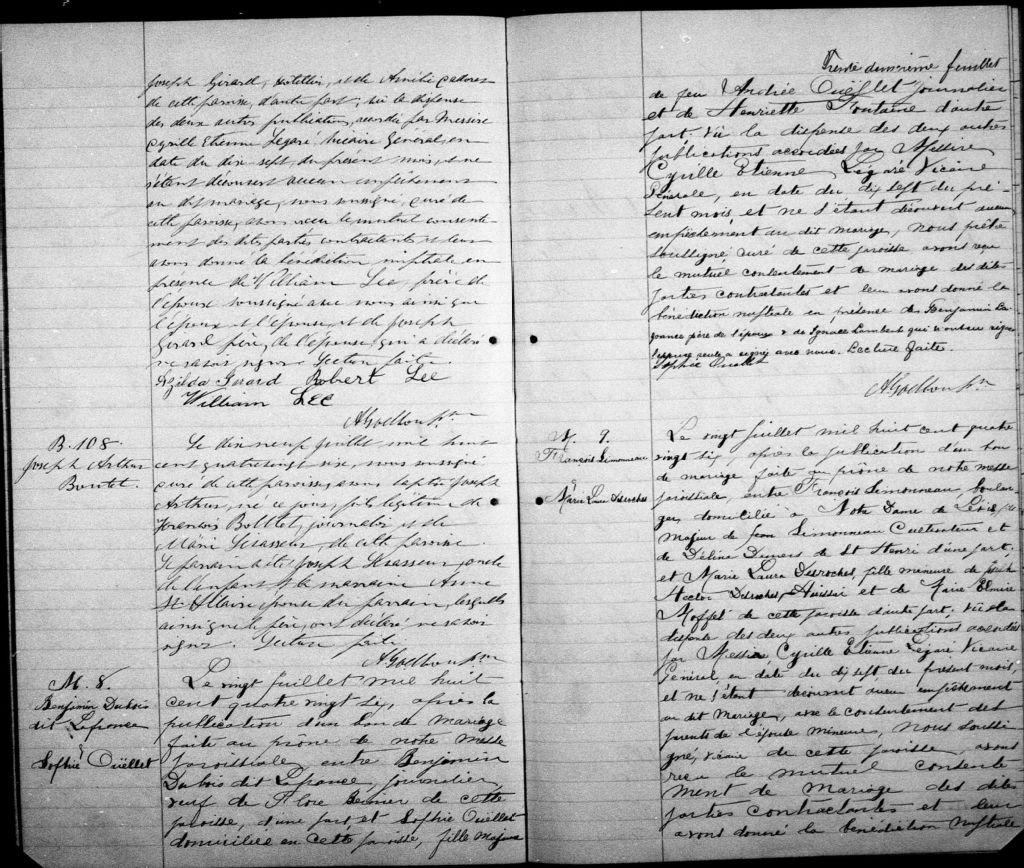 Joseph Girard, hôtellier, et de Amélie Cadoret
de cette paroisse, d'autre part; vu la dispense
des deux autres publications, accordée par Messire
Cyrille Etienne Légaré, Vicaire Général, en
date du dix sept du présent mois, et ne
s'étant découvert aucun empêchement
au dit mariage, nous soussigné, curé de
cette paroisse, avons reçu le mutuel consente-
ment des dites parties contractantes, et leur
avons donné la bénédiction nuptiale en
présence de William Lee, père de
l'époux soussigné avec nous ainsi que
l'époux et l'épouse, et de Joseph
Girard père, de l'épouse, qui a déclaré
ne savoir signer. Lecture faite
Exilda Girard Robert Lee
William Lee
AGodbout Ptre
B. 108.
Joseph Arthur
Boutet.
Le dix neuf juillet mil huit
cent quatrevingt six, nous soussigné
curé de cette paroisse, avons baptisé Joseph
Arthur, né ce jour, fils légitime de
François Boutet, journalier et de
Marie Vrasseur, de cette paroisse.
Le parrain a été Joseph Vrasseur, oncle
de l'enfant & la marraine Anne
St Hilaire épouse du parrain, lesquels
ainsi que le père, ont déclaré ne savoir
signer. Lecture faite
AGodbout Ptre
M. 8.
Benjamin Dubois
dit Lafrance
&
Sophie Ouëllet
Le vingt juillet mil huit
cent quatre vingt six, après la
publication d'un ban de mariage
faite au prône de notre messe
paroissiale, entre Benjamin
Dubois dit Lafrance, journalier,
veuf de Flore Bernier de cette
paroisse, d'une part et Sophie Ouëllet
domiciliée en cette paroisse, fille majeure
Trente deuxième feuillet
de feu André Ouëllet Journalier
et de Henriette Fontaine d'autre
part. Vu la dispense des deux autres
publications accordées par Messire
Cyrille Etienne Légaré Vicaire
Général, en date du dix sept du pré-
sent mois, et ne s'étant découvert aucun
empêchement au dit mariage, nous prêtre
soussigné, curé de cette paroisse avons reçu
le mutuel consentement de mariage des dites
parties contractantes et leur avons donné la
bénédiction nuptiale en présence de Benjamin La-
france père de l'époux & de Ignace Lambert qui
l'épouse seule a signé avec nous. Lecture faite.
Sophie Ouellet
AGodbout Ptre
M. 9.
François Simonneau
&
Marie Laura Desroches
Le vingt juillet mil huit cent quatre
vingt six, après la publication d'un ban
de mariage faite au prône de notre messe
paroissiale, entre François Simonneau, boulan-
ger, domicilié à Notre Dame de Lévis, fils
majeur de Jean Simonneau Cultivateur et
de Délina Dumers de St Henri d'une part,
et Marie Laura Desroches, fille mineure de
Hector Desroches, Huissier et de Marie Elmire
Moffet de cette paroisse d'autre part, vu la
dispense des deux autres publications accordées
par Messire, Cyrille Etienne Légaré Vicaire
Général, en date du dix sept du présent mois
et ne s'étant découvert aucun empêchement
au dit Mariage, avec le consentement des
parents de l'épouse mineure, nous soussi-
gné, vicaire de cette paroisse, avons
reçu le mutuel consente-
ment de Mariage des dites
parties contractants et leur
avons donné la bénédiction nuptiale